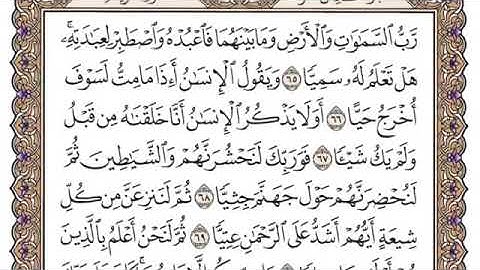 رَّبُّ ٱلسَّمَٰوَٰتِ وَٱلْأَرْضِ وَمَا بَيْنَهُمَا فَٱعْبُدْهُ وَٱصْطَبِرْ لِعِبَٰدَتِهِۦۚ
هَلْ تَعْلَمُ لَهُۥ سَمِيًّا ٦٥ وَيَقُولُ ٱلْإِنسَٰنُ أَءِذَا مَا مِتُّ لَسَوْفَ
أُخْرَجُ حَيًّا ٦٦ أَوَلَا يَذْكُرُ ٱلْإِنسَٰنُ أَنَّا خَلَقْنَٰهُ مِن قَبْلُ
وَلَمْ يَكُ شَيْـًٔا ٦٧ فَوَرَبِّكَ لَنَحْشُرَنَّهُمْ وَٱلشَّيَٰطِينَ ثُمَّ
لَنُحْضِرَنَّهُمْ حَوْلَ جَهَنَّمَ جِثِيًّا ٦٨ ثُمَّ لَنَنزِعَنَّ مِن كُلِّ
شِيعَةٍ أَيُّهُمْ أَشَدُّ عَلَى ٱلرَّحْمَٰنِ عِتِيًّا ٦٩ ثُمَّ لَنَحْنُ أَعْلَمُ بِٱلَّذِينَ